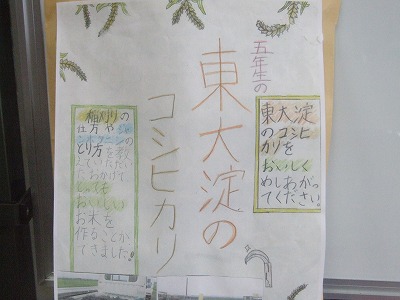 五年生の
東大淀の
コシヒカリ
東大淀
のコシヒ
カリを
おいしく
めしあがっ
てください。
稲刈りの
仕方や
とり方を教
えていただい
たおかげで
とっても
おいしい
お米を
作ることが
できました!